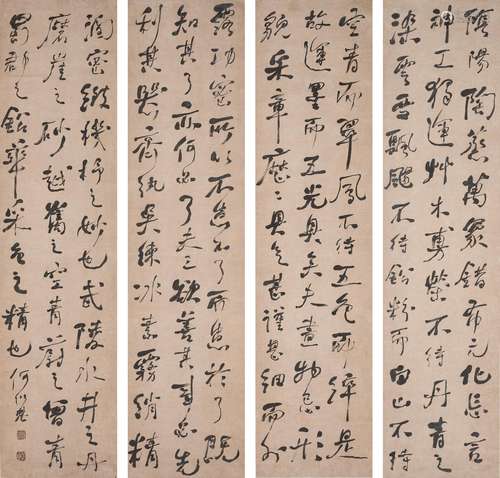 陰陽陶蒸萬象錯布元化忘言
神工獨運艸木旉榮不待丹青之
染雲雪飄颺不待鉛粉而白山不待
空青而翠鳳不待五色而綷是
故運墨而五光具矣夫畫物忌形
貌采章歷歷具足甚謹甚細而外
露巧密所以不患不了而患於了既
知其了亦何必了夫工欲善其事必先
利其器齊紈吳練冰素霧綃精
潤密緻機杼之妙也武陵水井之丹
磨崖之砂越嶲之空青蔚之曾青
蜀郡之鉛華采色之精也 何紹基